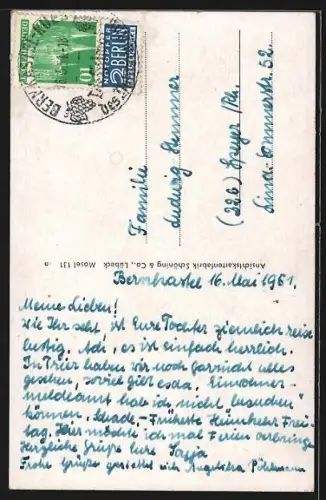 Bernkastel 16. Mai 1951.
Meine Lieben!
Wie Ihr seht, ist Eure Tochter ziemlich reise
lustig. Ach, es ist einfach herrlich.
In Trier haben wir noch garnicht alles
gesehen, soviel gibt es da. Einwohner-
meldeamt hab ich nicht besuchen
können, schade. - Früheste Heimkehr Frei-
tag. Hier möchte ich mal Ferien verbringen
Herzliche Grüße Eure
Frohe Grüße gestattet sich Angelika
Familie
Ludwig
(22b) Speyer/Rh.
52.
Ansichtskartenfabrik Schöning & Co., Lübeck Mosel 131
10
NOTOPFER
2 BERLIN
STEUERMARKE